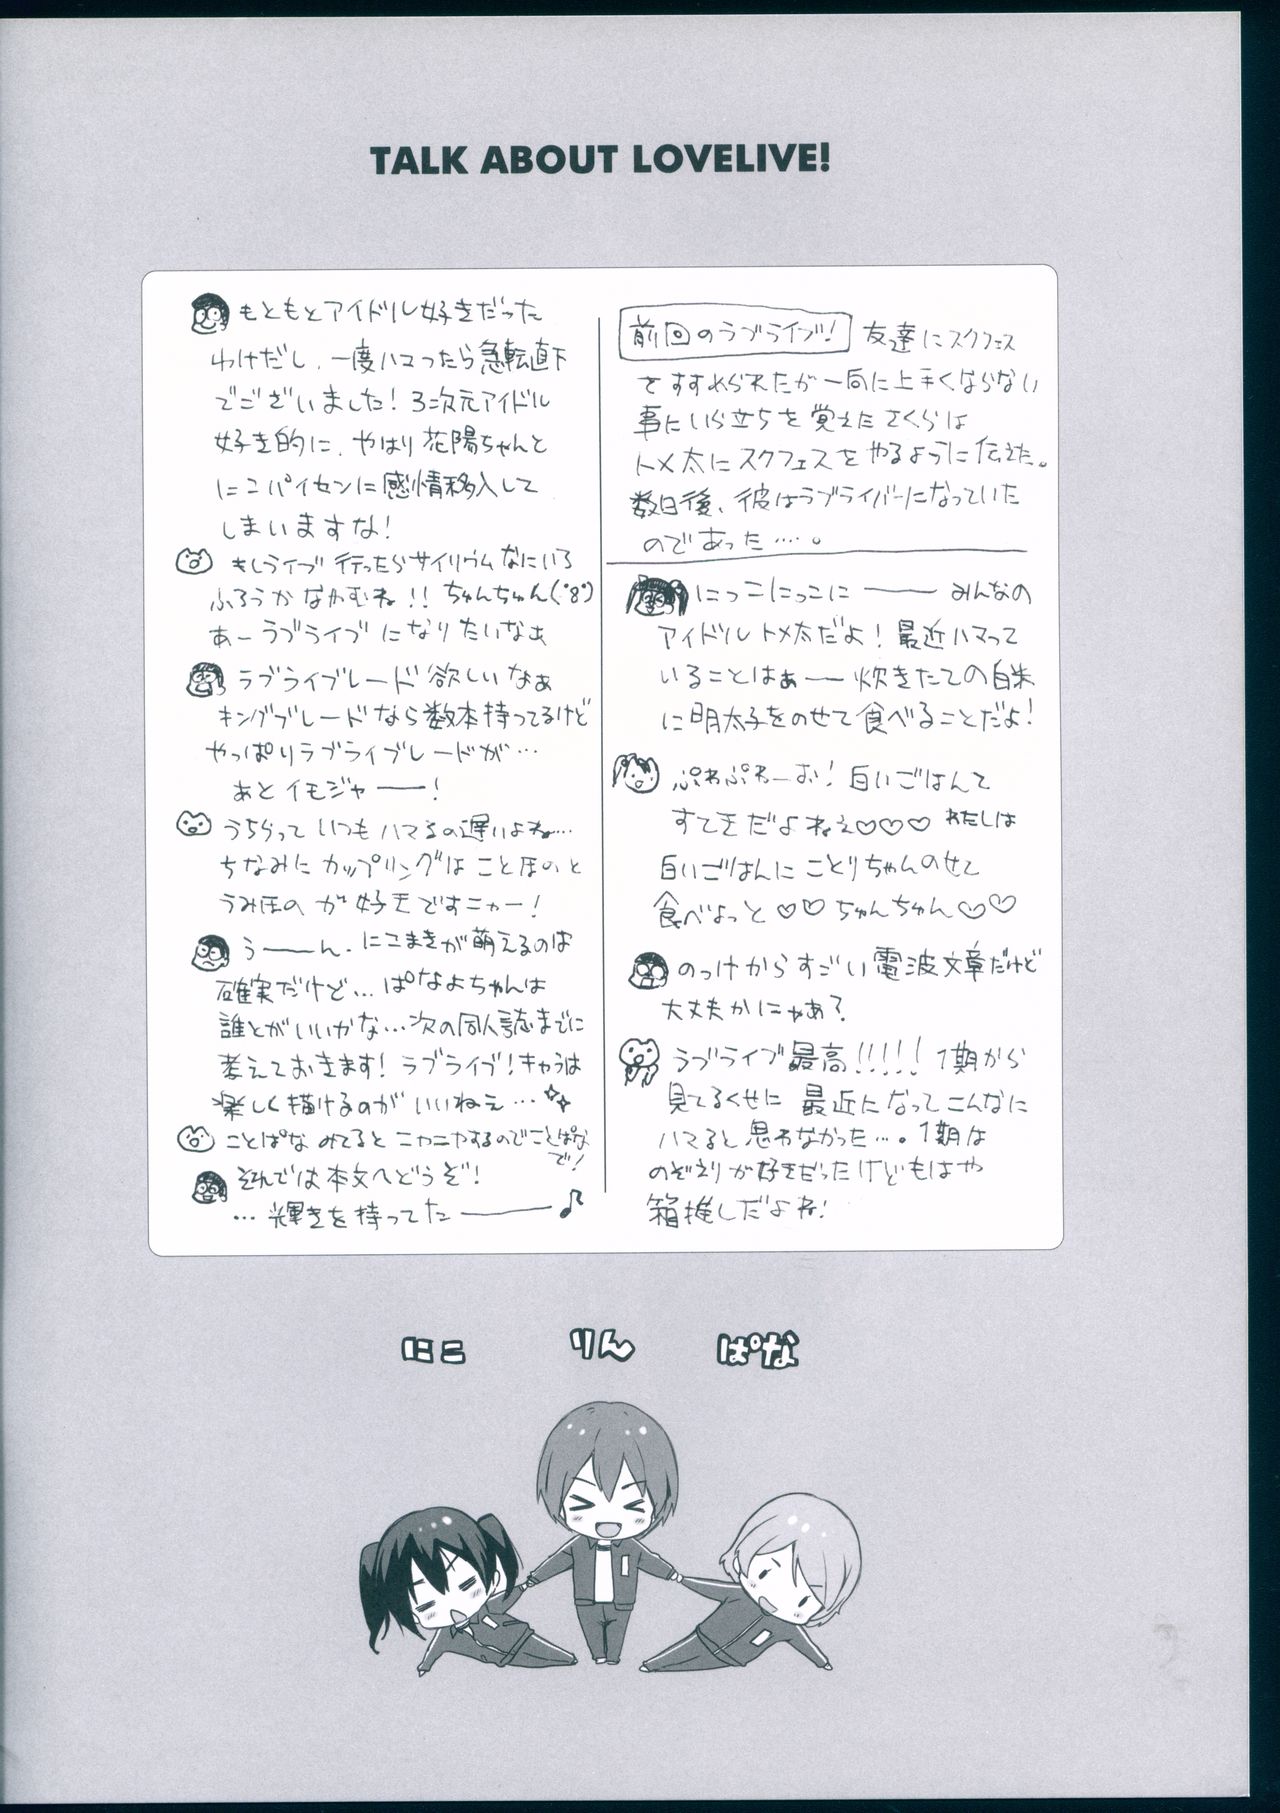 TALK ABOUT LOVELIVE!
前回のラブライブ! 友達にスクフェス
をすすめられたが一向に上手くならない
事にいら立ちを覚えたさくらは
トメ太にスクフェスをやるように伝えた。
数日後、彼はラブライバーになっていた
のであった‥‥。
にっこにっこに─── みんなの
アイドルトメ太だよ! 最近ハマって
いることはぁ── 炊きたての白米
に明太子をのせて食べることだよ!
ぷわぷわーお! 白いごはんて
すてきだよねぇ♡♡♡ わたしは
白いごはんに ことりちゃんのせて
食べよっと♡♡ ちゅんちゅん♡♡
のっけからすごい電波文章だけど
大丈夫かにゃあ?
ラブライブ最高!!!!! 1期から
見てるくせに 最近になってこんなに
ハマると思わなかった‥‥。1期は
のぞえりが好きだったけどもはや
箱推しだよね!
もともとアイドル好きだった
わけだし、一度ハマったら急転直下
でございました! 3次元アイドル
好き的に、やはり花陽ちゃんと
にこパイセンに感情移入して
しまいますな!
もしライブ行ったらサイリウムなにいろ
ふろうかなやむね!! ちゅんちゅん(・8・)
あーラブライブになりたいなぁ
ラブライブレード欲しいなぁ
キングブレードなら数本持ってるけど
やっぱりラブライブレードが…
あとイモジャ──!
うちらっていつもハマるの遅いよね…
ちなみにカップリングはことほのと
うみほのが好きですニャー!
う──ん、にこまきが萌えるのは
確実だけど…ぱなよちゃんは
誰とがいいかな…次の同人誌までに
考えておきます! ラブライブ!キャラは
楽しく描けるのがいいねぇ…
ことぱなみてるとニヤニヤするのでことぱな
で!
それでは本文へどうぞ!
…輝きを持ってた───♪
にこ りん ぱな